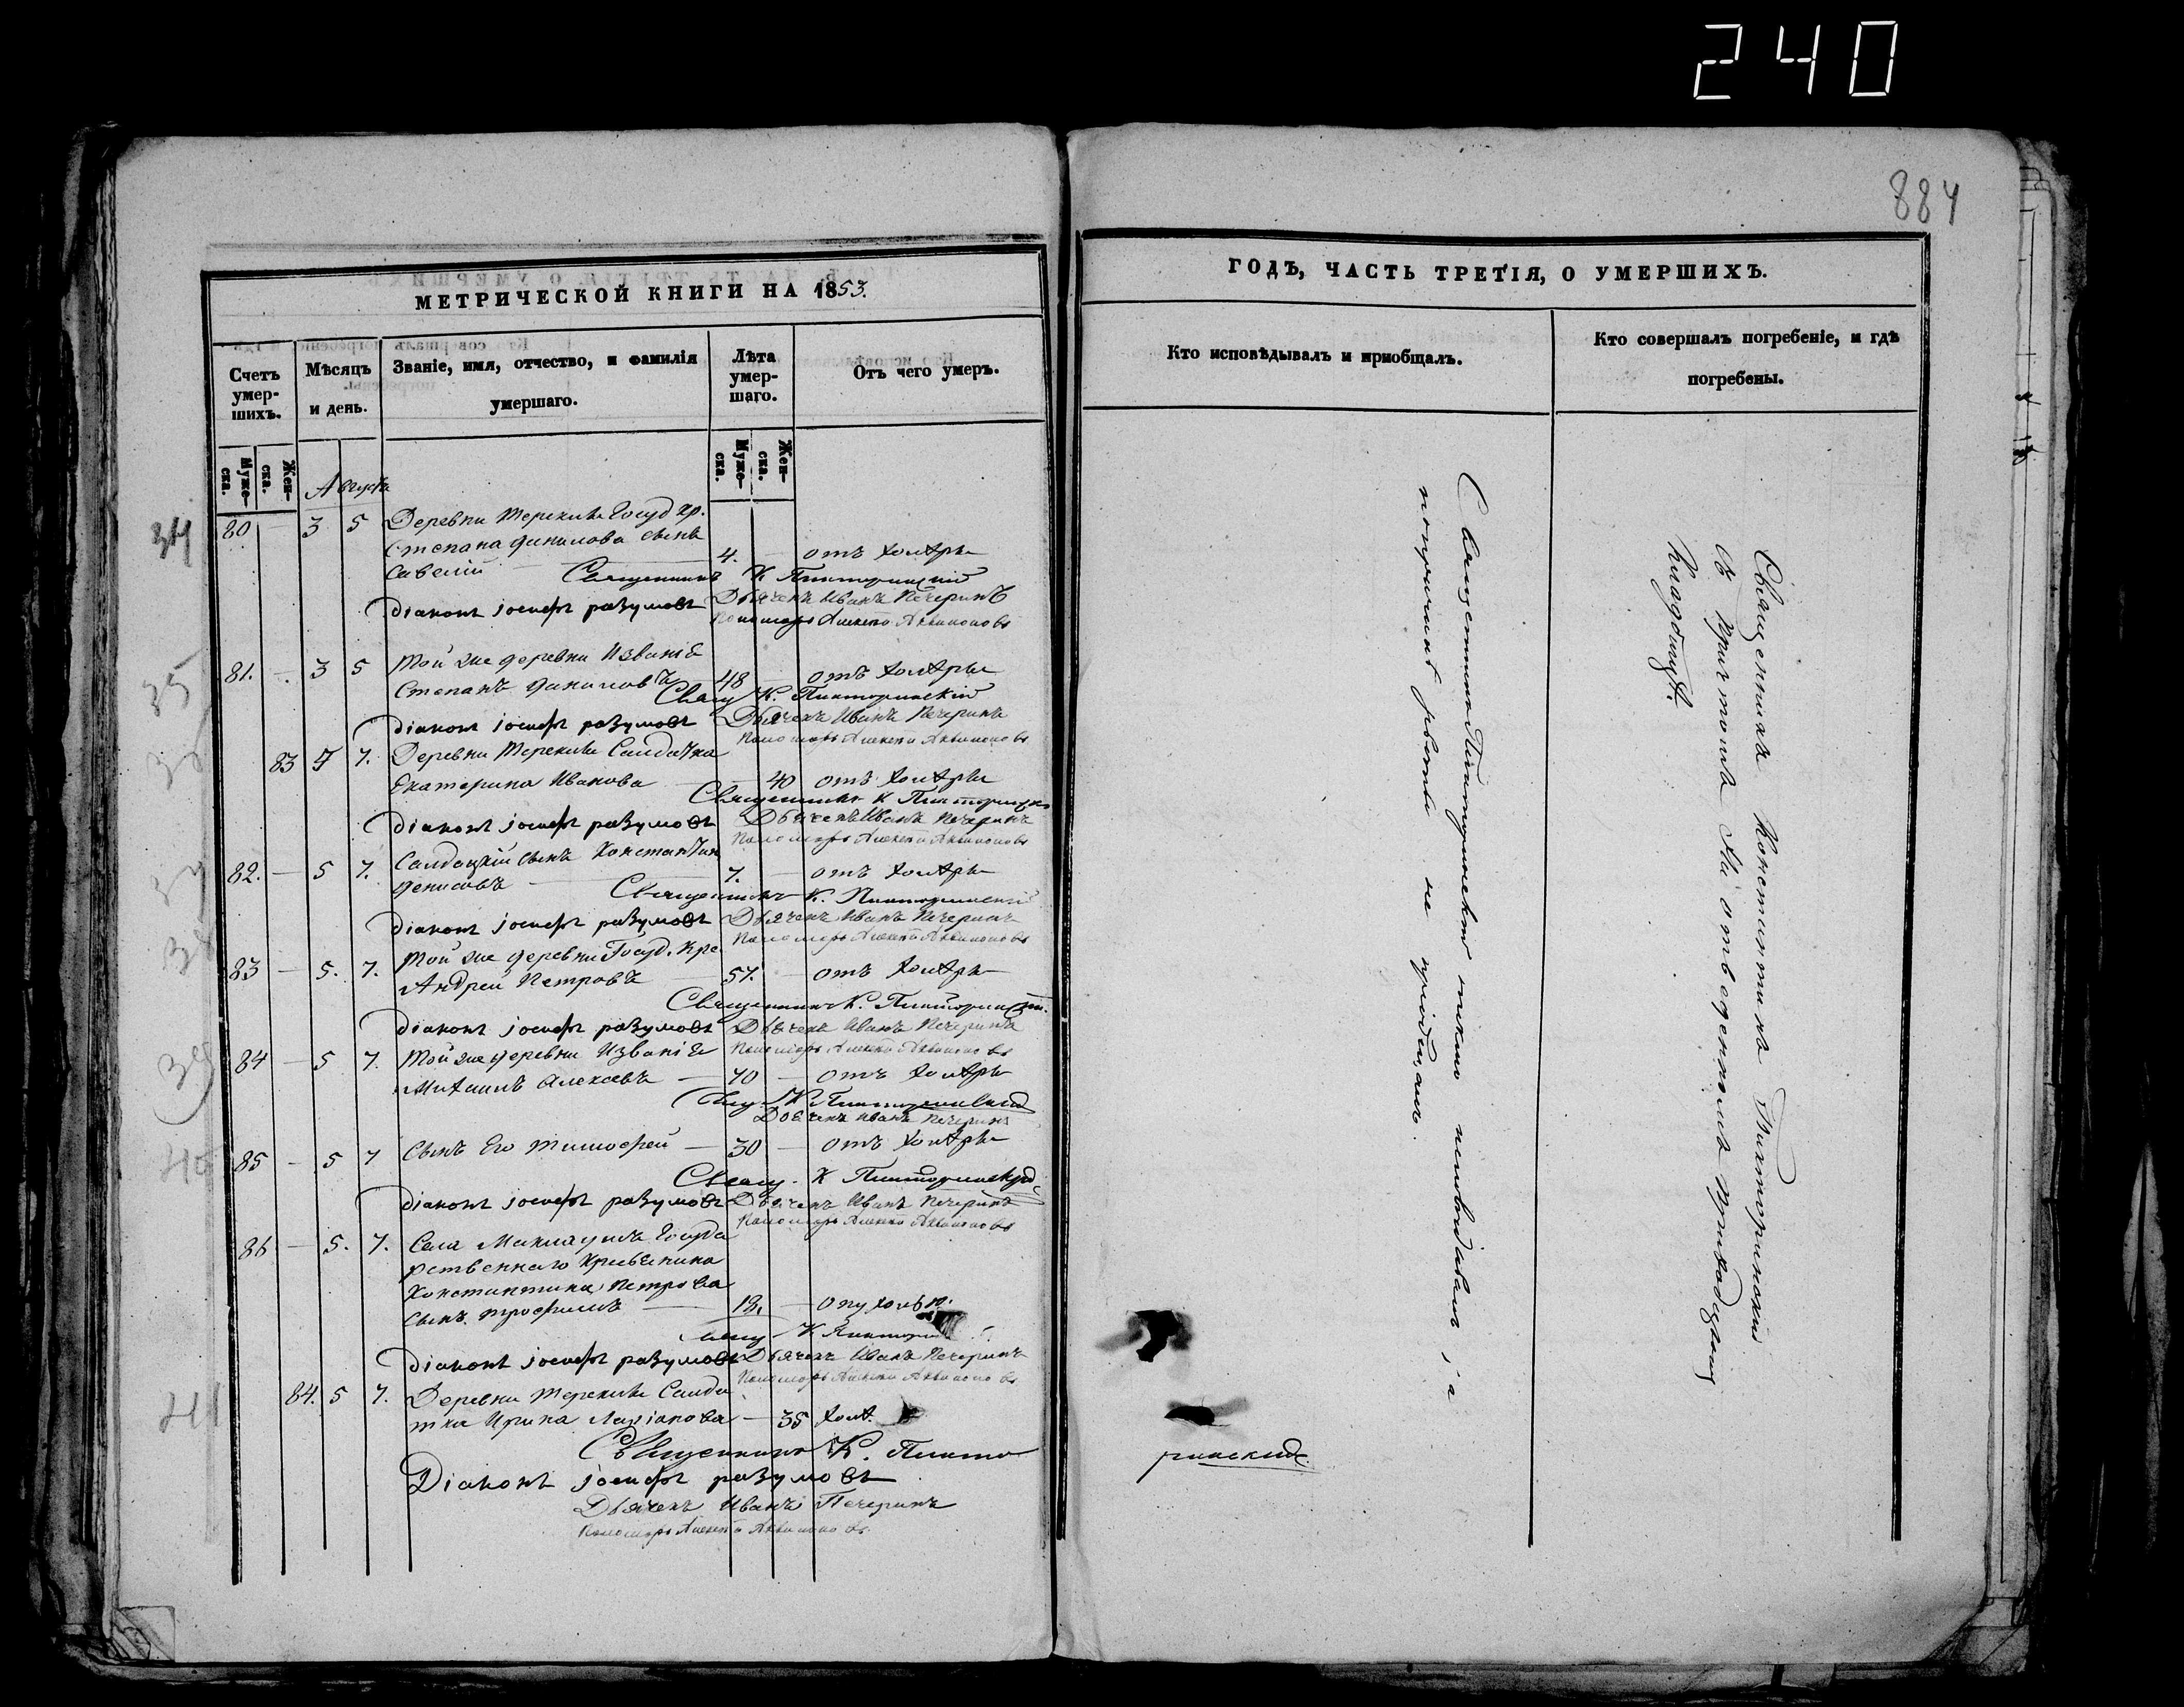 240
884
МЕТРИЧЕСКОЙ КНИГИ НА 1853.
Счетъ умер-шихъ.
Мѣсяцъ и день.
Званіе, имя, отчество, и фамилія умершаго.
Лѣта умер-шаго.
Отъ чего умеръ.
Муже-ска.
Жен-ска.
Муже-ска.
Жен-ска.
Августъ
34
80 — 3 5 Деревни Терекли Госуд кр.
Степана Данилова сынъ
Савелій — 4. — отъ холеры
Священникъ К Пикторинскій
Діаконъ іосифъ разумовъ Дьячекъ Иванъ Печеринъ
Пономарь Алексѣй
35
81. — 3 5 Той же деревни
Степанъ Даниловъ 48 — отъ холеры
Свящ К. Пикторинскій
Діаконъ іосифъ разумовъ Дьячекъ Иванъ Печеринъ
Пономарь Алексѣй
83 5 7. Деревни Терекли Салдатка
Екатерина Иванова — 40 отъ холеры
Священникъ К Пикторинскій
Діаконъ іосифъ разумовъ Дьячекъ Иванъ Печеринъ
Пономарь Алексѣй
82. — 5 7. Салдацкій сынъ Константинъ
Денисовъ — 7. — отъ холеры
Священникъ К. Пикторинскій
Діаконъ іосифъ разумовъ Дьячекъ Иванъ Печеринъ
Пономарь Алексѣй
38
83 — 5. 7. Той же деревни Госуд. Кре
Андрей Петровъ 57. — отъ холеры
Священникъ К. Пикторинскій
Діаконъ іосифъ разумовъ Дьячекъ Иванъ Печеринъ
Пономарь Алексѣй
39
84 — 5 7. Той же деревни
Михаилъ Алексѣевъ — 70 — отъ холеры
Свящ. К. Пикторинскій
Дьячекъ Иванъ Печеринъ
40
85 — 5 7 Сынъ Его Тимофей — 30 — отъ холеры
Свящ. К Пикторинскій
Діаконъ іосифъ разумовъ Дьячекъ Иванъ Печеринъ
Пономарь Алексѣй
86 — 5. 7. Села Государственнаго Крестьянина
Константина Петрова
сынъ Трофимъ — 18. —
Свящ К
Діаконъ іосифъ разумовъ Дьячекъ Иванъ Печеринъ
Пономарь Алексѣй
41
84. 5 7. Деревни Терекли Салда
тка Ирина — 35 хол.
Священникъ К. Пикто
ринскій
Діаконъ іосифъ разумовъ
Дьячекъ Иванъ Печеринъ
Пономарь Алексѣй
ГОДЪ, ЧАСТЬ ТРЕТІЯ, О УМЕРШИХЪ.
Кто исповѣдывалъ и пріобщалъ.
Кто совершалъ погребеніе, и гдѣ погребены.
Священникъ Пикторинскій токмо исповѣдавалъ, а
по причинѣ рвоты не пріобщалъ.
Священникъ Константинъ Пикторинскій
съ причтомъ На отведенномъ приходскомъ
Кладбищѣ.